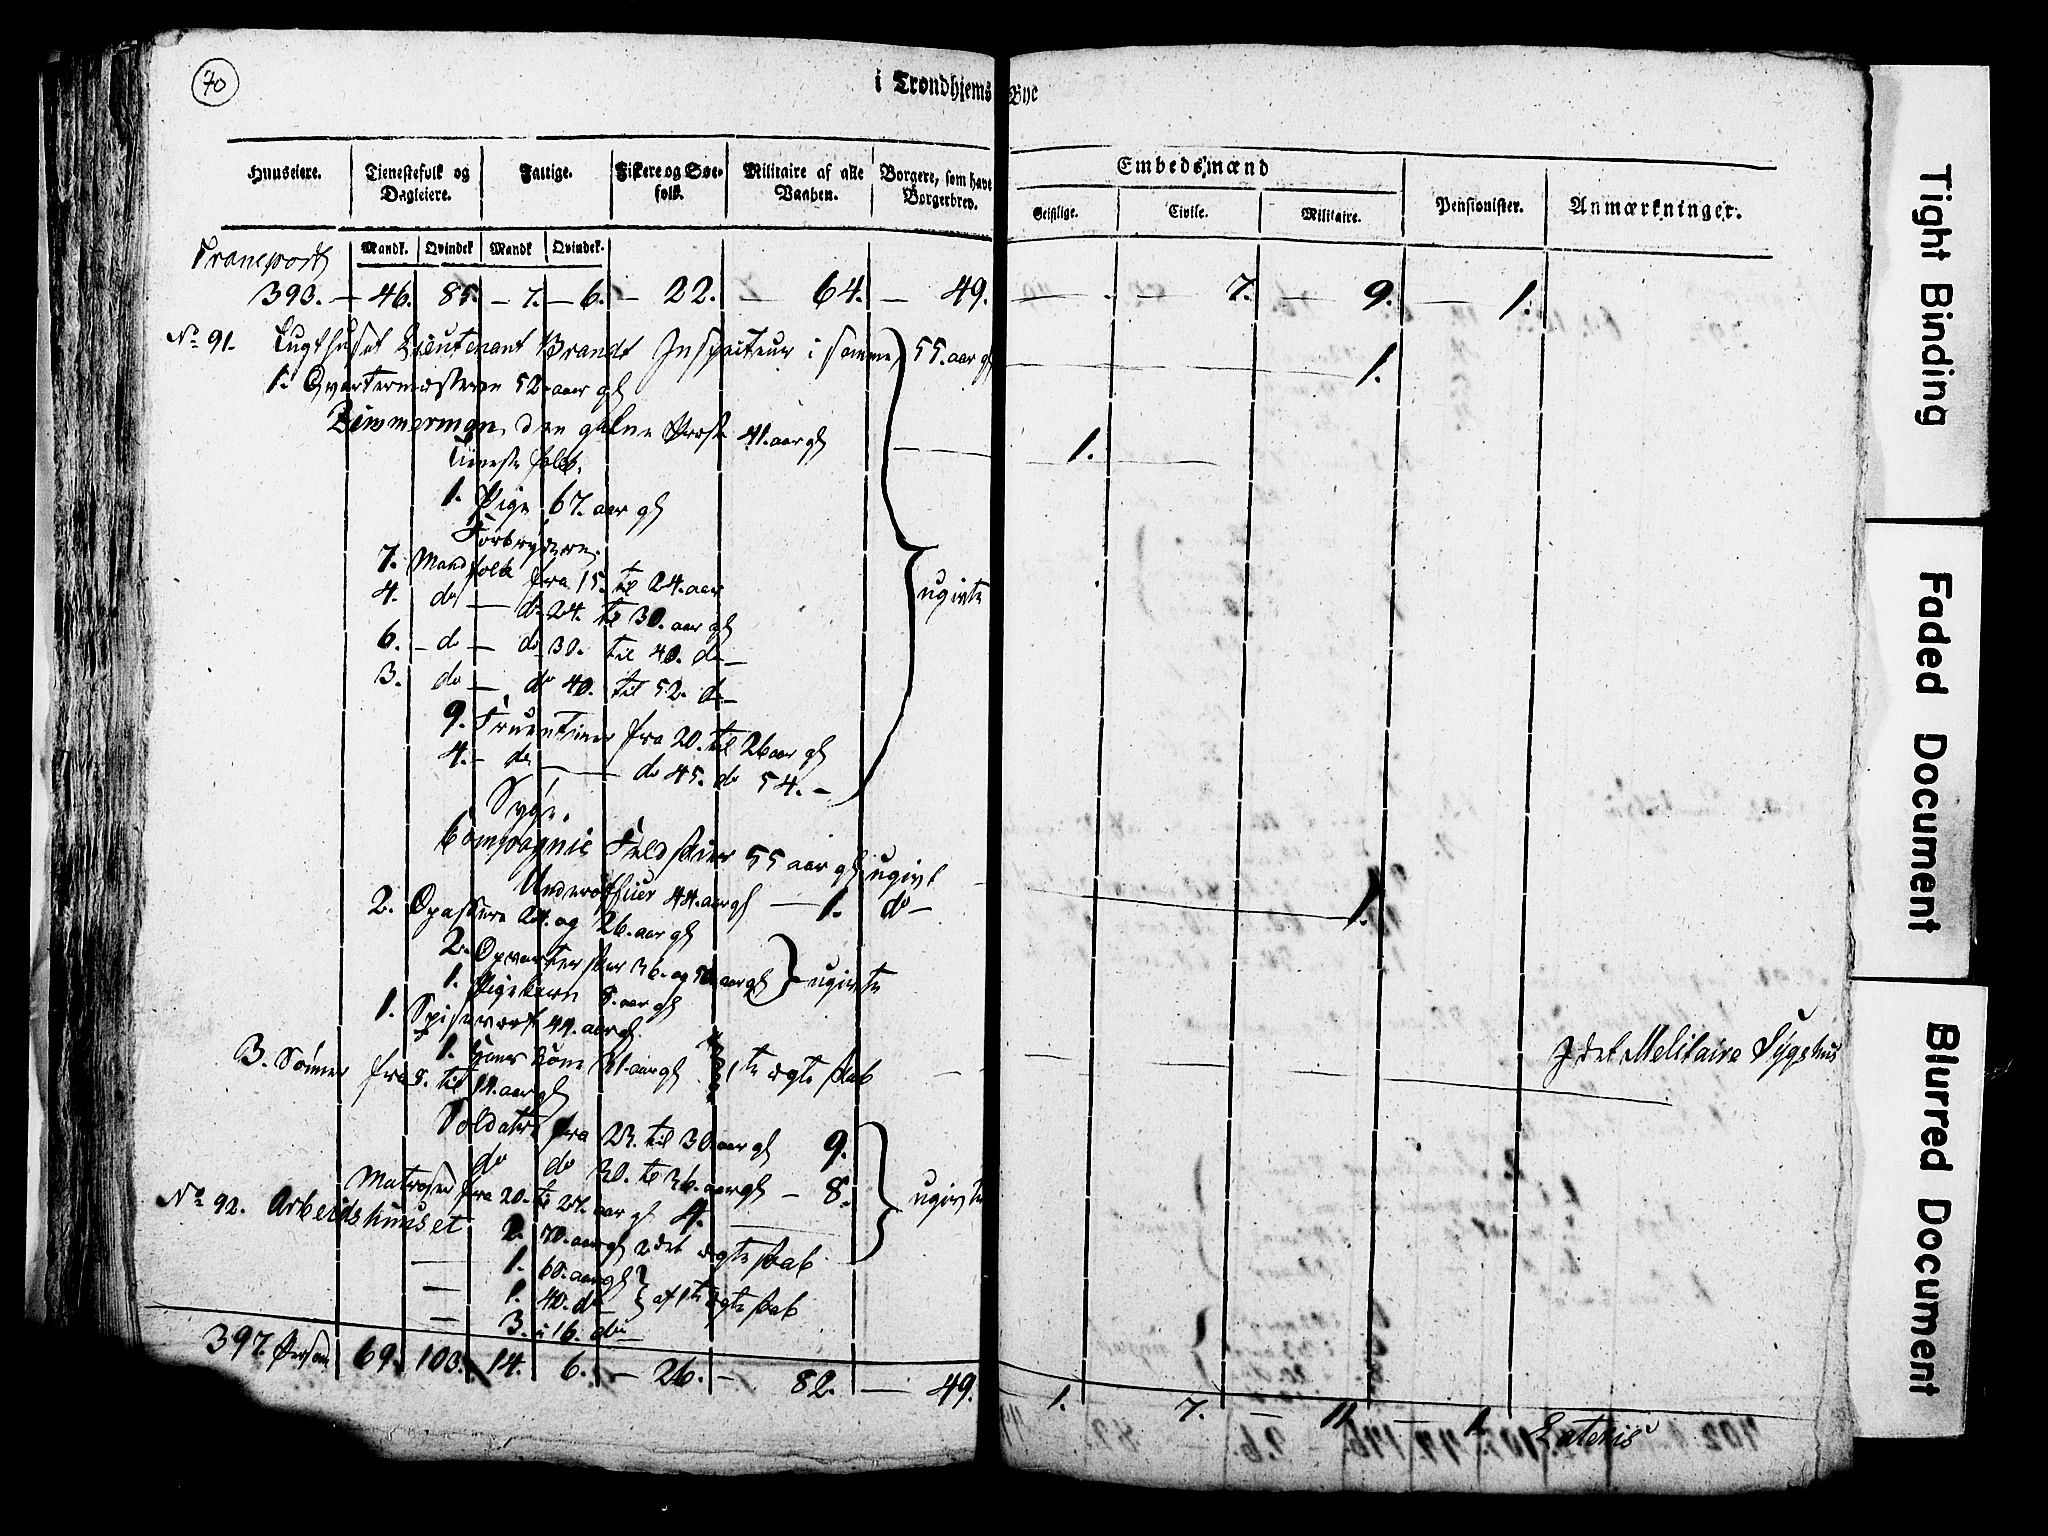 70
i Trondhjems Bye
Huuseiere. Tienestefolk og Dagleiere. Fattige. Fiskere og Søefolk. Militaire af alle Vaaben. Borgere, som have Borgerbrev. Embedsmænd Pensionister. Anmærkninger.
Geistlige. Civile. Militaire.
Mandk. Qvindek Mandk Qvindek.
Transport
393. — 46. 85. — 7. — 6. — 22. — 64. — 49. — 7. — 9. — 1.
No 91. Tugthuset Lieutenant Brandt Inspecteur i samme 55. aar gl 1.
1. Qvartermesteren 52. aar gl
Zimmerman, den galne Præst 41. aar gl 1.
Tieneste folk.
1. Pige 67. aar gl
Forbrydere.
7. Mandfolk fra 15. til 24. aar
4. do — do 24. til 30. aar gl ugivte
6. — do — do 30. til 40. do —
3. do — do 40. til 52. do —
9. Fruentimer fra 20. til 26 aar gl
4. — do — do 45. do 54. —
Syge.
Compagnie Feldskier 55 aar gl ugivt 1.
Underofficier 44. aar gl — 1. do —
2. Opassere 24. og 26. aar gl
2. Opvartersker 36. og 50. aar gl
1. Pigebarn 8. aar gl ugivte
1. Spisevært 44. aar gl.
1. Hans Kone 41. aar gl 1te ægteskab
3. Sønner fra 8. til 14. aar gl
I det Militaire Sygehus
Soldater fra 23. til 30. aar gl 9.
do do 30. til 36. aar gl — 8. ugivte
Matroser fra 20. til 24. aar gl 4.
No 92. Arbeidshuuset
2. 70. aar gl 2det ægteskab
— 1. 60. aar gl
— 1. 40. do — af 1te ægteskab
— 3. i 16. do —
397. Person 69. 103. 14. 6. — 26. — 82. — 49. 1. 7. — 11. — 1. Lateris
Tight Binding
Faded Document
Blurred Document